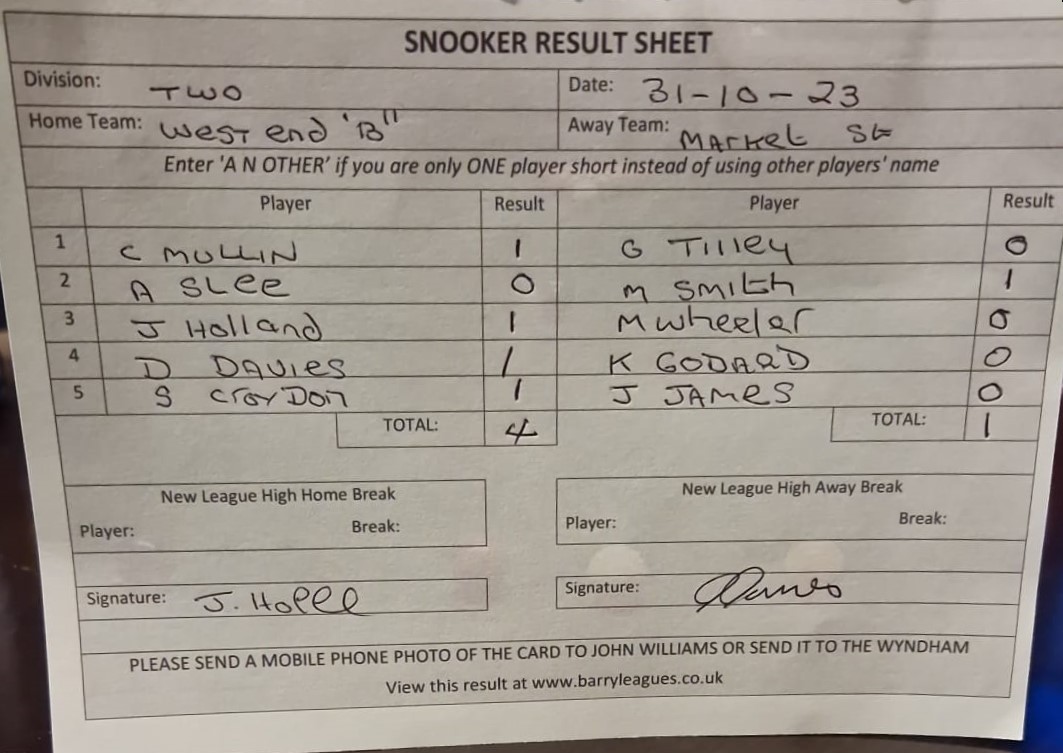 SNOOKER RESULT SHEET
Division: TWO Date: 31-10-23
Home Team: West end 'B" Away Team: Market St
Enter 'A N OTHER' if you are only ONE player short instead of using other players' name
Player Result Player Result
1 C MULLIN 1 G TIlley 0
2 A SLee 0 M SMith 1
3 J Holland 1 M wheeler 0
4 D DAVIES 1 K GODARD 0
5 S CroyDon 1 J JAMES 0
TOTAL: 4 TOTAL: 1
New League High Home Break New League High Away Break
Player: Break: Player: Break:
Signature: J. Holll Signature:
PLEASE SEND A MOBILE PHONE PHOTO OF THE CARD TO JOHN WILLIAMS OR SEND IT TO THE WYNDHAM
View this result at www.barryleagues.co.uk